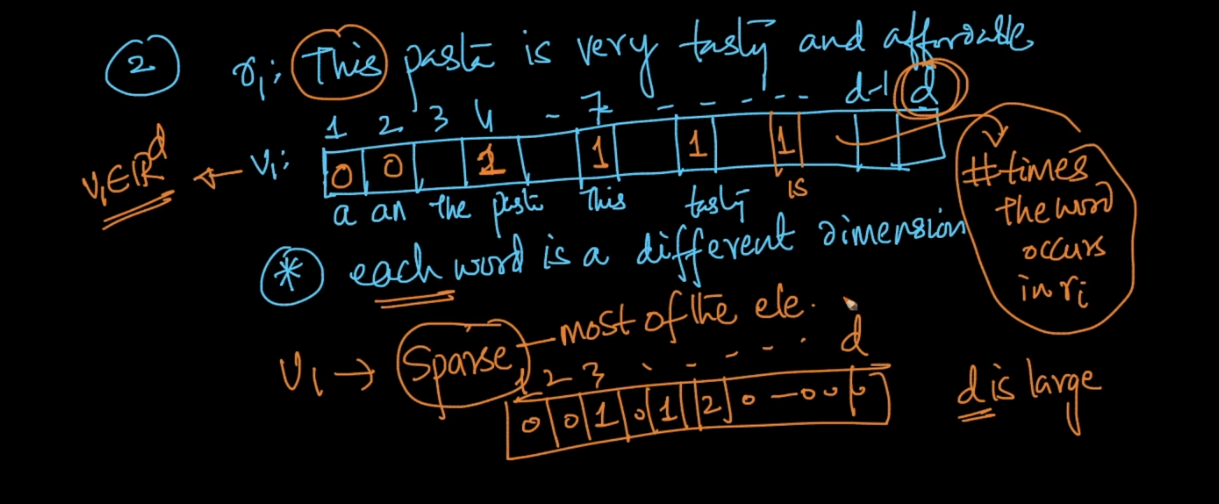 2 r1: This pasta is very tasty and affordable
1 2 3 4 - 7 - - - - - d-1 d
v1 ∈ R^d ← v1: 0 0 1 1 1 1
a an the pasta This tasty is
#times
the word
occurs
in ri
* each word is a different dimension
v1 → Sparse — most of the ele.
1 2 3 . - - - - . d
0 0 1 0 1 2 0 — 0 0 0
d is large